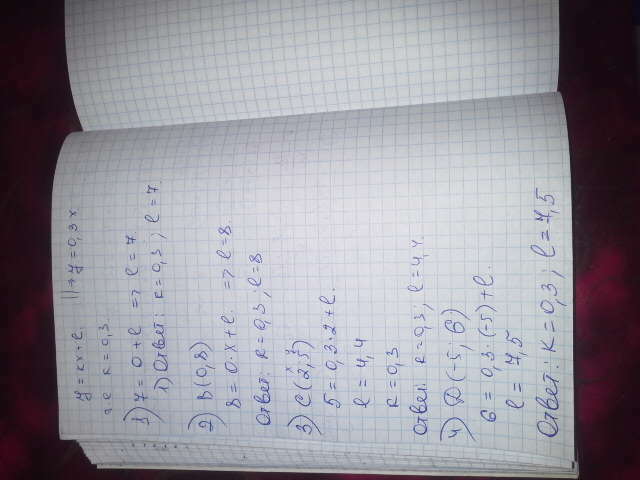 y = kx + l. || → y = 0,3x
т.е к = 0,3.
1) 7 = 0 + l => l = 7
1) Ответ: к = 0,3 ; l = 7.
2) B(0,8)
8 = 0 · x + l. => l = 8.
Ответ: к = 0,3 ; l = 8
x y
3) C(2,5)
5 = 0,3 · 2 + l.
l = 4,4
к = 0,3
Ответ: к = 0,3 ; l = 4,4.
4) D(-5; 6)
6 = 0,3 · (-5) + l.
l = 7,5
Ответ: к = 0,3 ; l = 7,5